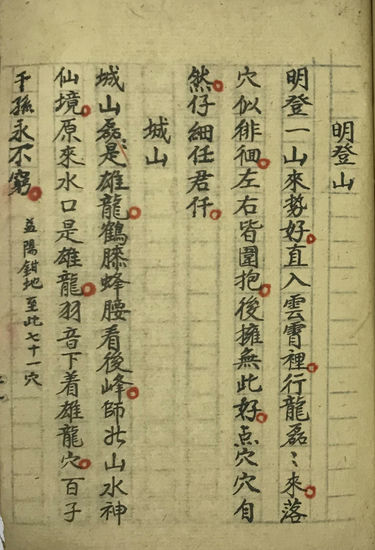 明登山
明登一山來勢好直入雲霄裡行龍磊〻來落
穴似徘徊左右皆圍抱後擁無此好点穴穴自
然仔細任君仟
城山
城山磊是雄龍鶴膝蜂腰看後峰師北山水神
仙境原來水口是雄龍羽音下着雄龍穴百子
千孫永不窮
益陽鉗地至此七十一穴